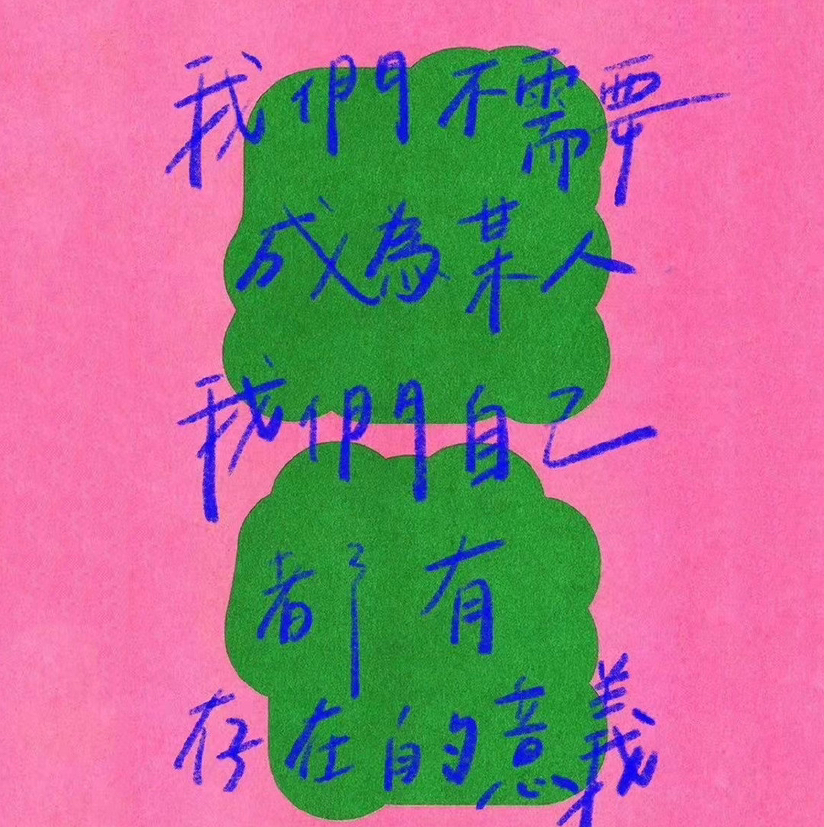 我們不需要
成為某人
我們自己
都有
存在的意義